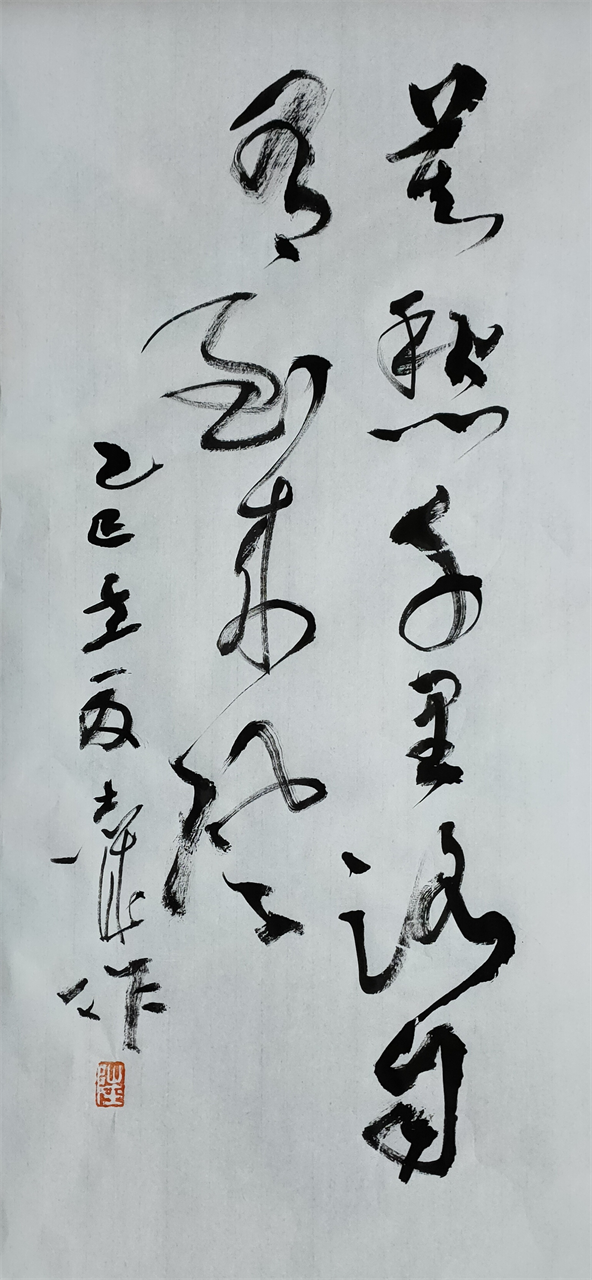 莫愁千里路自
有到来风
乙巳金夏
作